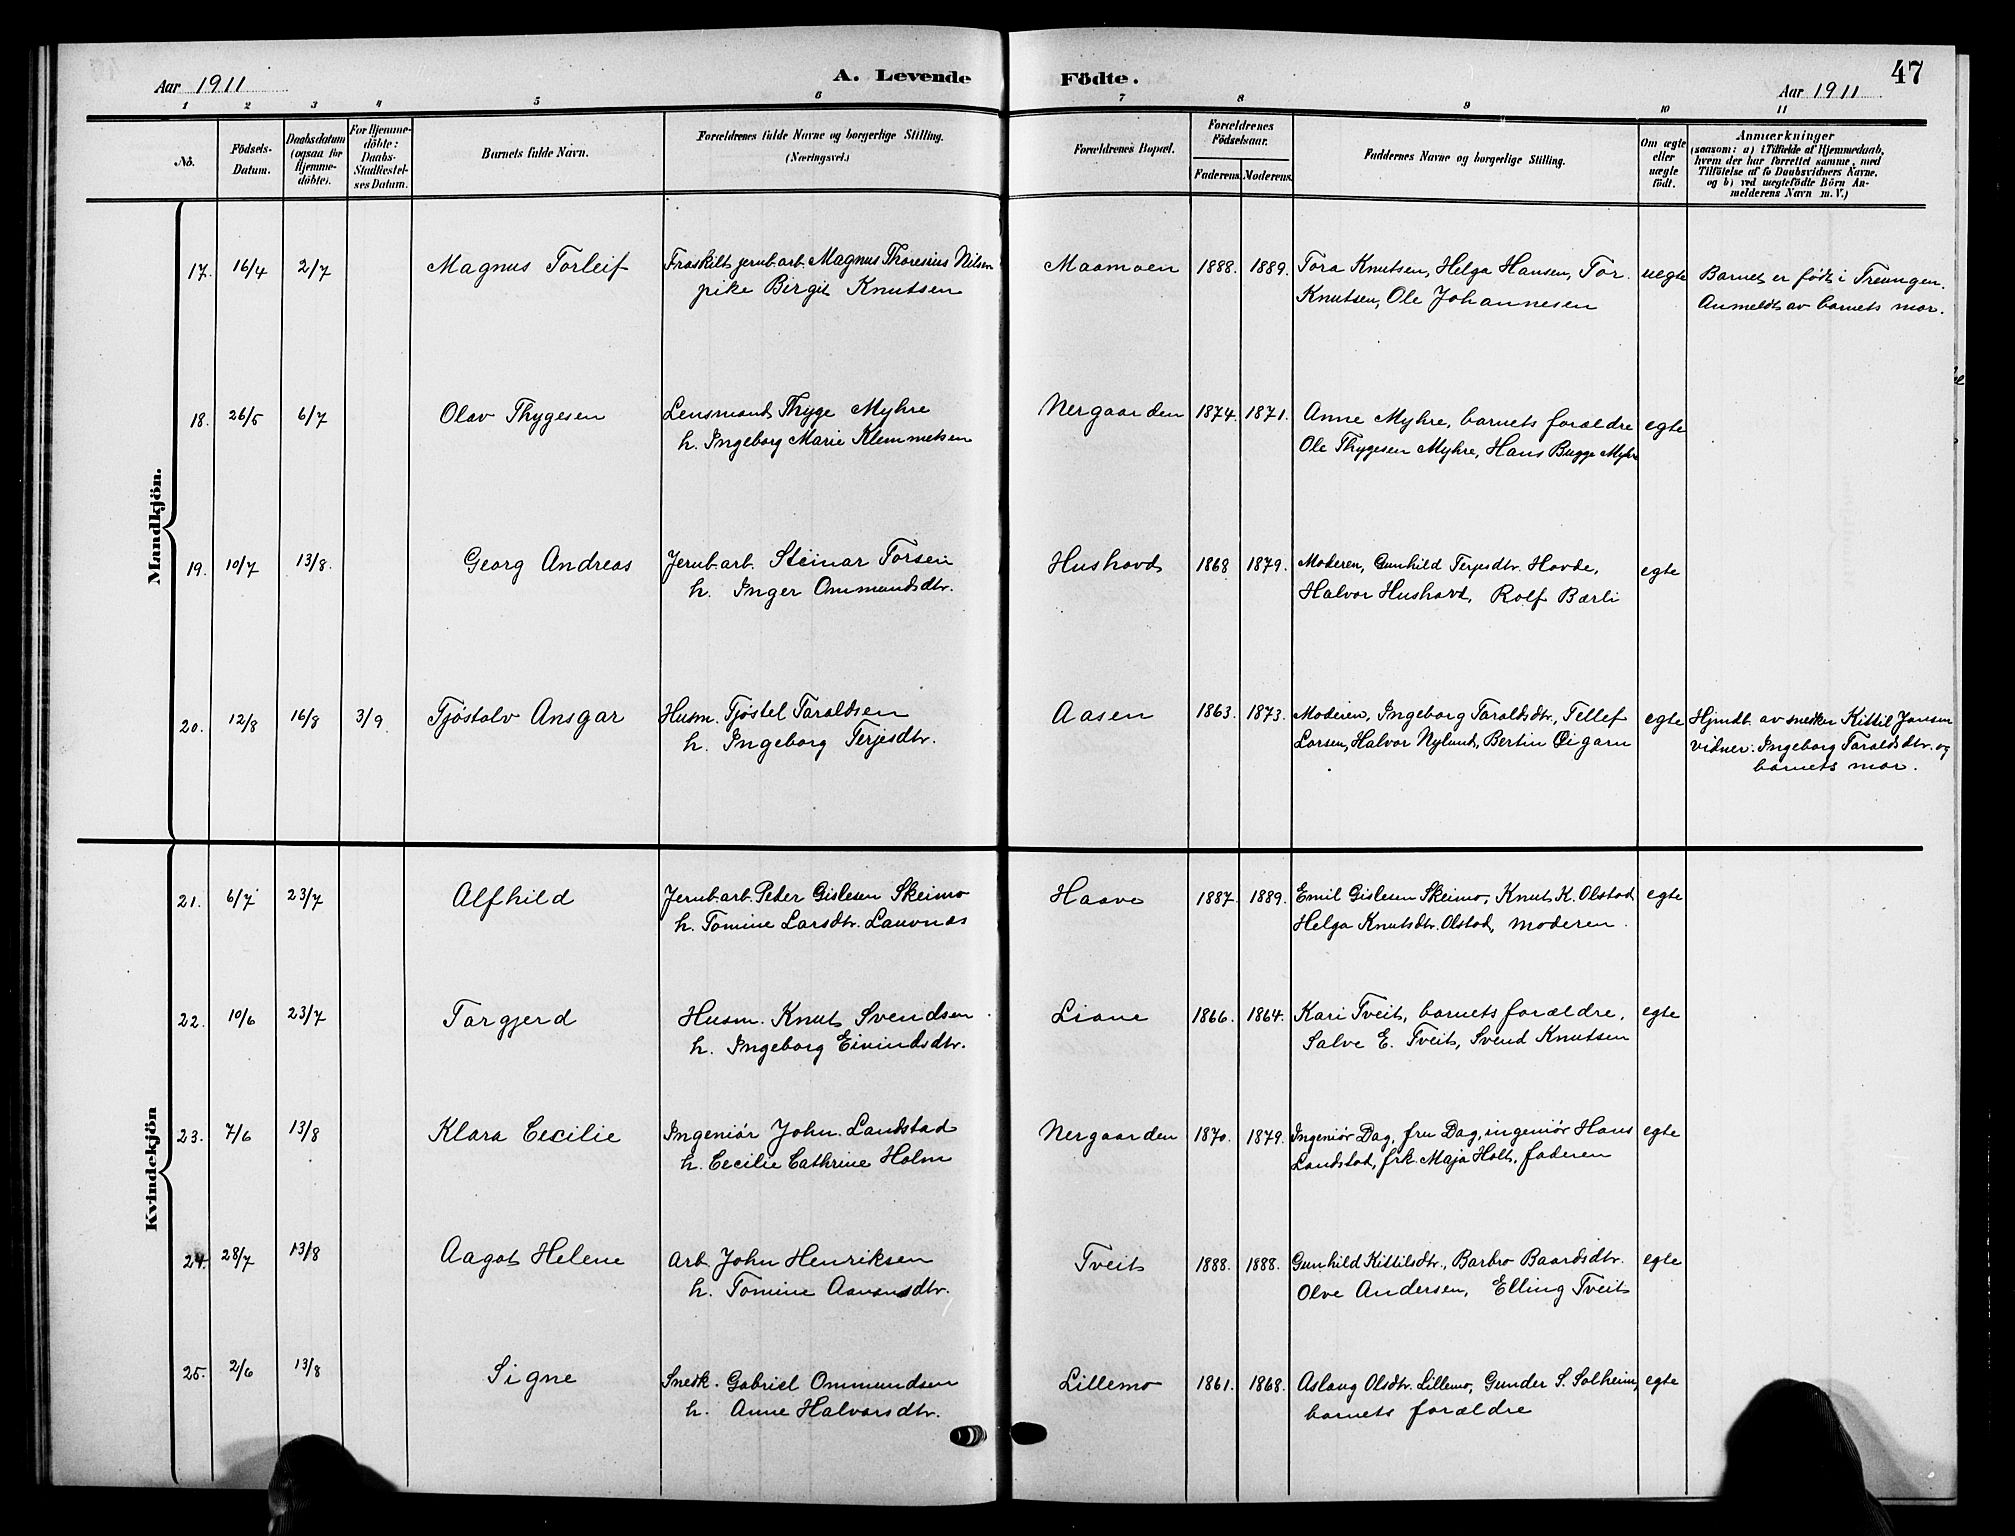 Aar 1911
A. Levende Födte.
Aar 1911
47
1 2 3 4 5 6 7 8 9 10 11
No.
Födsels-
Datum.
Daabsdatum
(ogsaa for
Hjemme-
döbte).
For Hjemme-
döbte:
Daabs-
Stadfæstel-
ses Datum.
Barnets fulde Navn.
Forældrenes fulde Navne og borgerlige Stilling.
(Næringsvei.)
Forældrenes Bopæl.
Forældrenes
Födselsaar.
Faderens. Moderens.
Faddernes Navne og borgerlige Stilling.
Om ægte
eller
uægte
födt.
Anmærkninger
(saasom: a) i Tilfælde af Hjemmedaab,
hvem der har forrettet samme, med
Tilföielse af to Daabsvidners Navne,
og b) ved uægtefödte Börn An-
melderens Navn m. V.)
Mandkjön.
17. 16/4 2/7 Magnus Torleif Fraskilt jernb.arb. Magnus Thoresius Nilsen Maamoen 1888. 1889. Tora Knutsen, Helga Hansen, Tor. uegte Barnet er født i Treungen.
pike Birgit Knutsen Knutsen, Ole Johannesen Anmeldt av barnets mor.
18. 26/5 6/7 Olav Thygesen Lensmand Thyge Myhre Nergaarden 1874. 1871. Anne Myhre, barnets forældre egte
h. Ingeborg Marie Klemmetsen Ole Thygesen Myhre, Hans Bugge Myhre
19. 10/7 13/8. Georg Andreas Jernb.arb. Steinar Torsein Hushovd 1868 1879. Moderen, Gunhild Terjesdtr. Hovde, egte
h. Inger Ommundsdtr. Halvor Hushovd, Rolf Bærli
20. 12/8 16/8 3/9. Tjøstolv Ansgar Husm. Tjøstel Taraldsen Aasen 1863. 1873. Moderen, Ingeborg Taraldsdtr., Tellef egte Hjmdt. av snedker Kittil Jansen
h. Ingeborg Terjesdtr. Larsen, Halvor Nylund, Bertin Øigarn vidner: Ingeborg Taraldsdtr. og
barnets mor.
Kvindekjön
21. 6/7 23/7 Alfhild Jernb.arb. Peder Gislesen Skeimo Haave 1887. 1889. Emil Gislesen Skeimo, Knut K. Olstad egte
h. Tomine Larsdtr. Lauvnes Helga Knutsdtr. Olstad, moderen.
22. 10/6 23/7 Targjerd Husm. Knut Svendsen Liane 1866. 1864. Kari Tveit, barnets forældre, egte
h. Ingeborg Eivindsdtr. Salve E. Tveit, Svend Knutsen
23. 7/6 13/8 Klara Cecilie Ingeniør John Landstad Nergaarden 1870. 1879. Ingeniør Dag, fru Dag, ingeniør Hans egte
h. Cecilie Cathrine Holm Landstad, frk. Maja Holt, faderen
24. 28/7 13/8 Aagot Helene Arb. John Henriksen Tveit 1888. 1888. Gunhild Kittilsdtr., Barbro Baardsdtr. egte
h. Tomine Aanensdtr. Olve Andersen, Elling Tveit
25. 2/6 13/8 Signe Snedk. Gabriel Ommundsen Lillemo 1861. 1868. Aslaug Olsdtr. Lillemo, Gunder S. Solheim, egte
h. Anne Halvorsdtr. barnets forældre